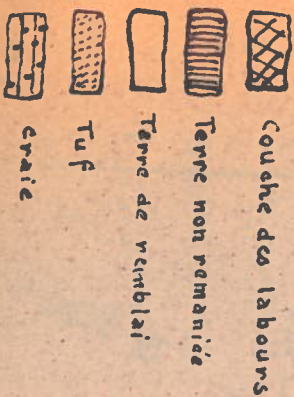 Couche des labours
Terre non remaniée
Terre de remblai
Tuf
Craie